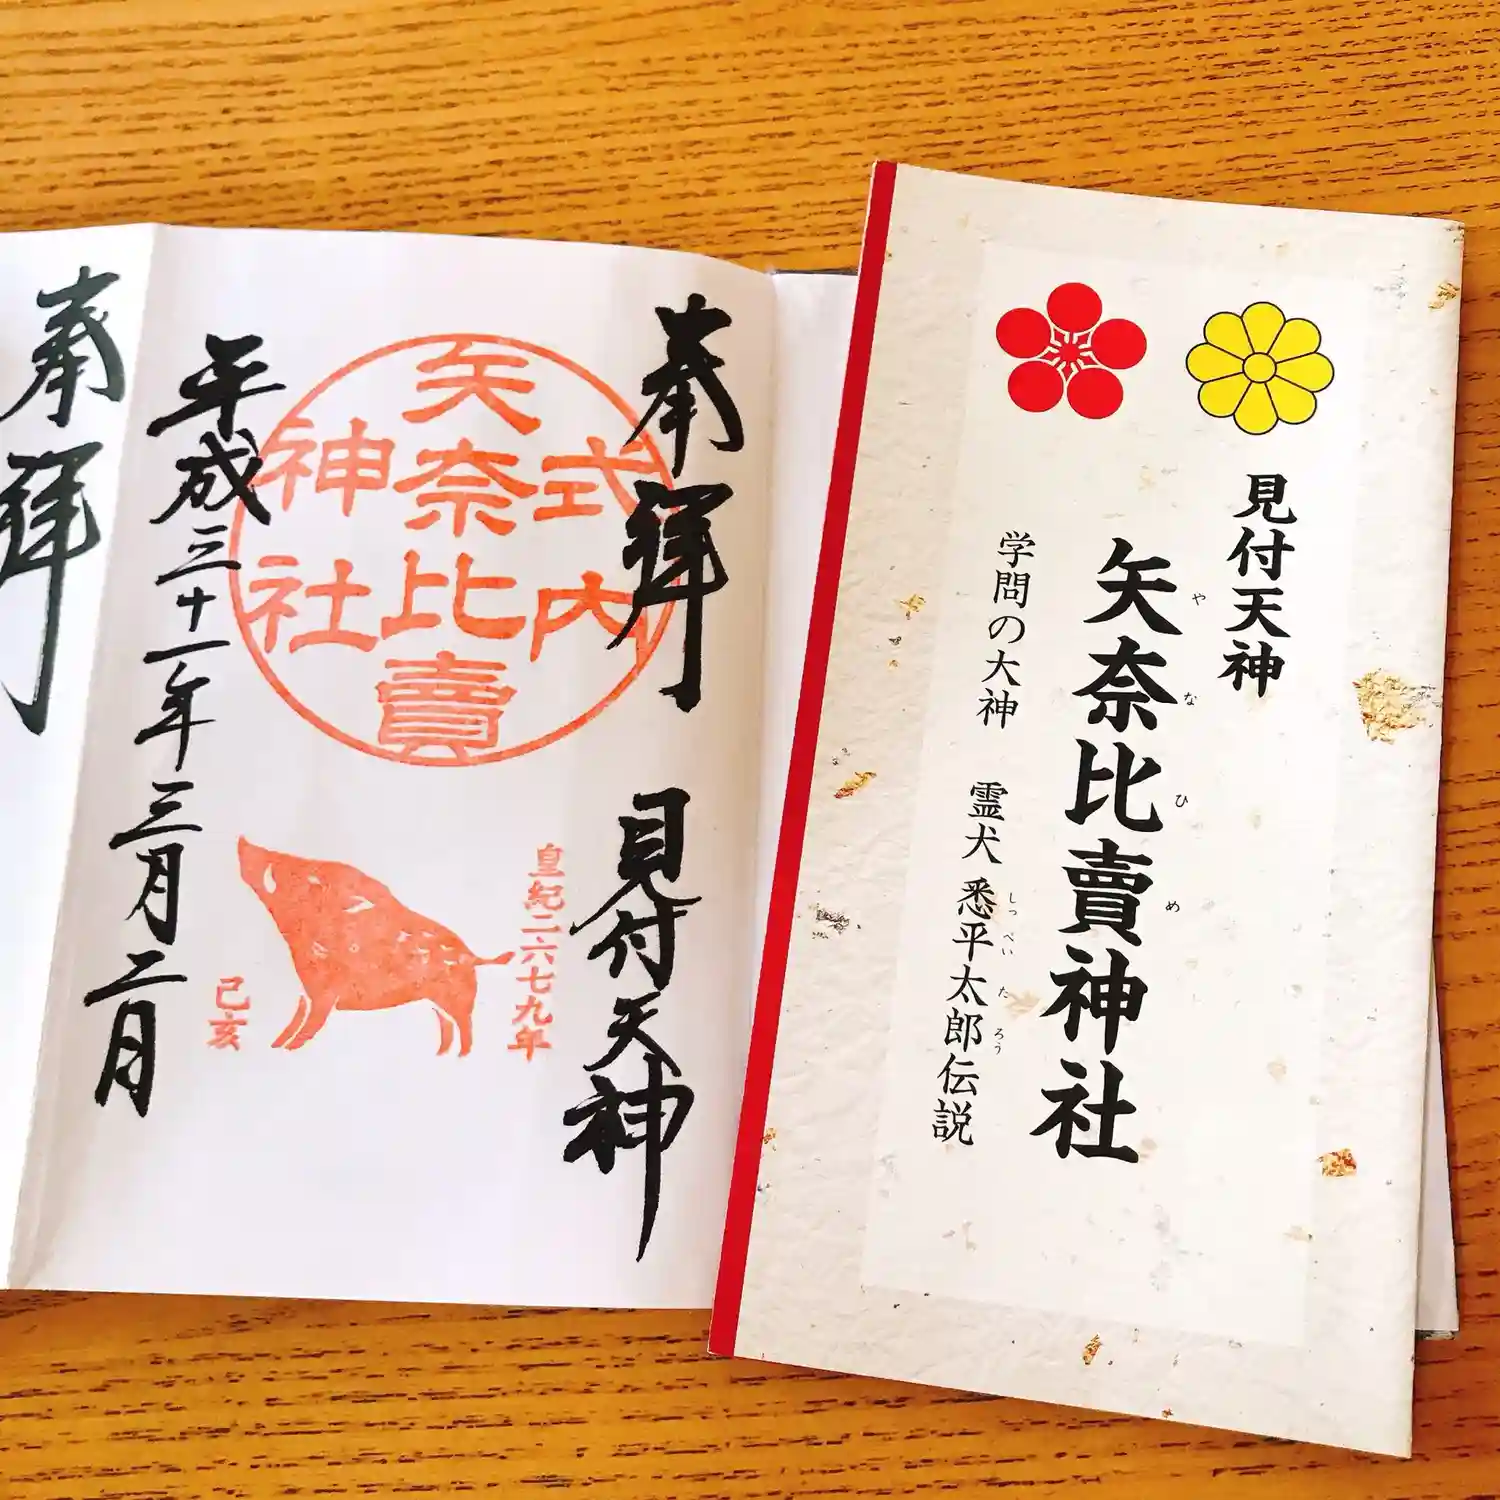 見付天神
矢奈比賣神社
や
な
ひ
め
学問の大神 霊犬 悉平太郎伝説
しっ
ぺい
た
ろう
奉拝 見付天神
式内
矢奈比賣
神社
皇紀二六七九年
己亥
平成三十一年三月二日
奉拝